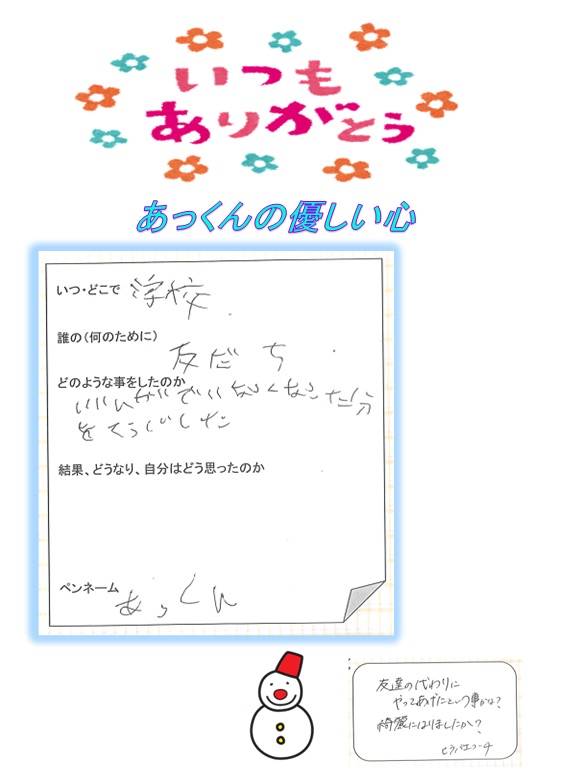 いつも
ありがとう
あっくんの優しい心
いつ・どこで 学校
誰の(何のために)
友だち
どのような事をしたのか
なくなった分
をそうじした
結果、どうなり、自分はどう思ったのか
ペンネーム
あっくん
友達の代わりに
やってあげたという事かな?
綺麗になりましたか?
コーチ